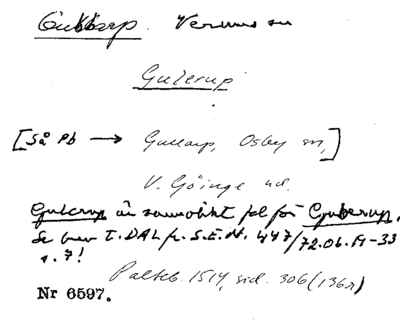 Gullarp. Verums sn
Gulerup
[Så Pb → Gullarp, Osby sn,]
V. Göinge hd.
Gulerup är sannolikt fel för Guberup.
Se brev t. DAL fr. S.E.H. 447/72.06.19-33
s. 7!
Palteb. 1514, sid. 306 (136r)
Nr 6597.